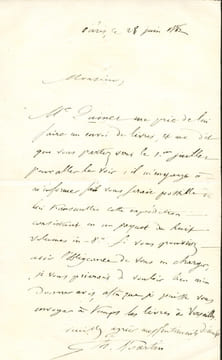 Paris, le 28 juin
Monsieur,
Mr me prie de lui
faire un envoi de livres, et me dit
que vous partez vers le 1er juillet
pour aller le voir ; il m'engage à
m'informer s'il vous serait possible de
lui transmettre cette expédition
consistant en un paquet de huit
volumes in 8º. Si vous pouviez
avoir l'obligeance de vous en charger,
je vous prierais de vouloir bien m'en
donner avis, afin que je puisse vous
envoyer à temps les livres de Versailles
Veuillez agréer mes sentiments
Martin